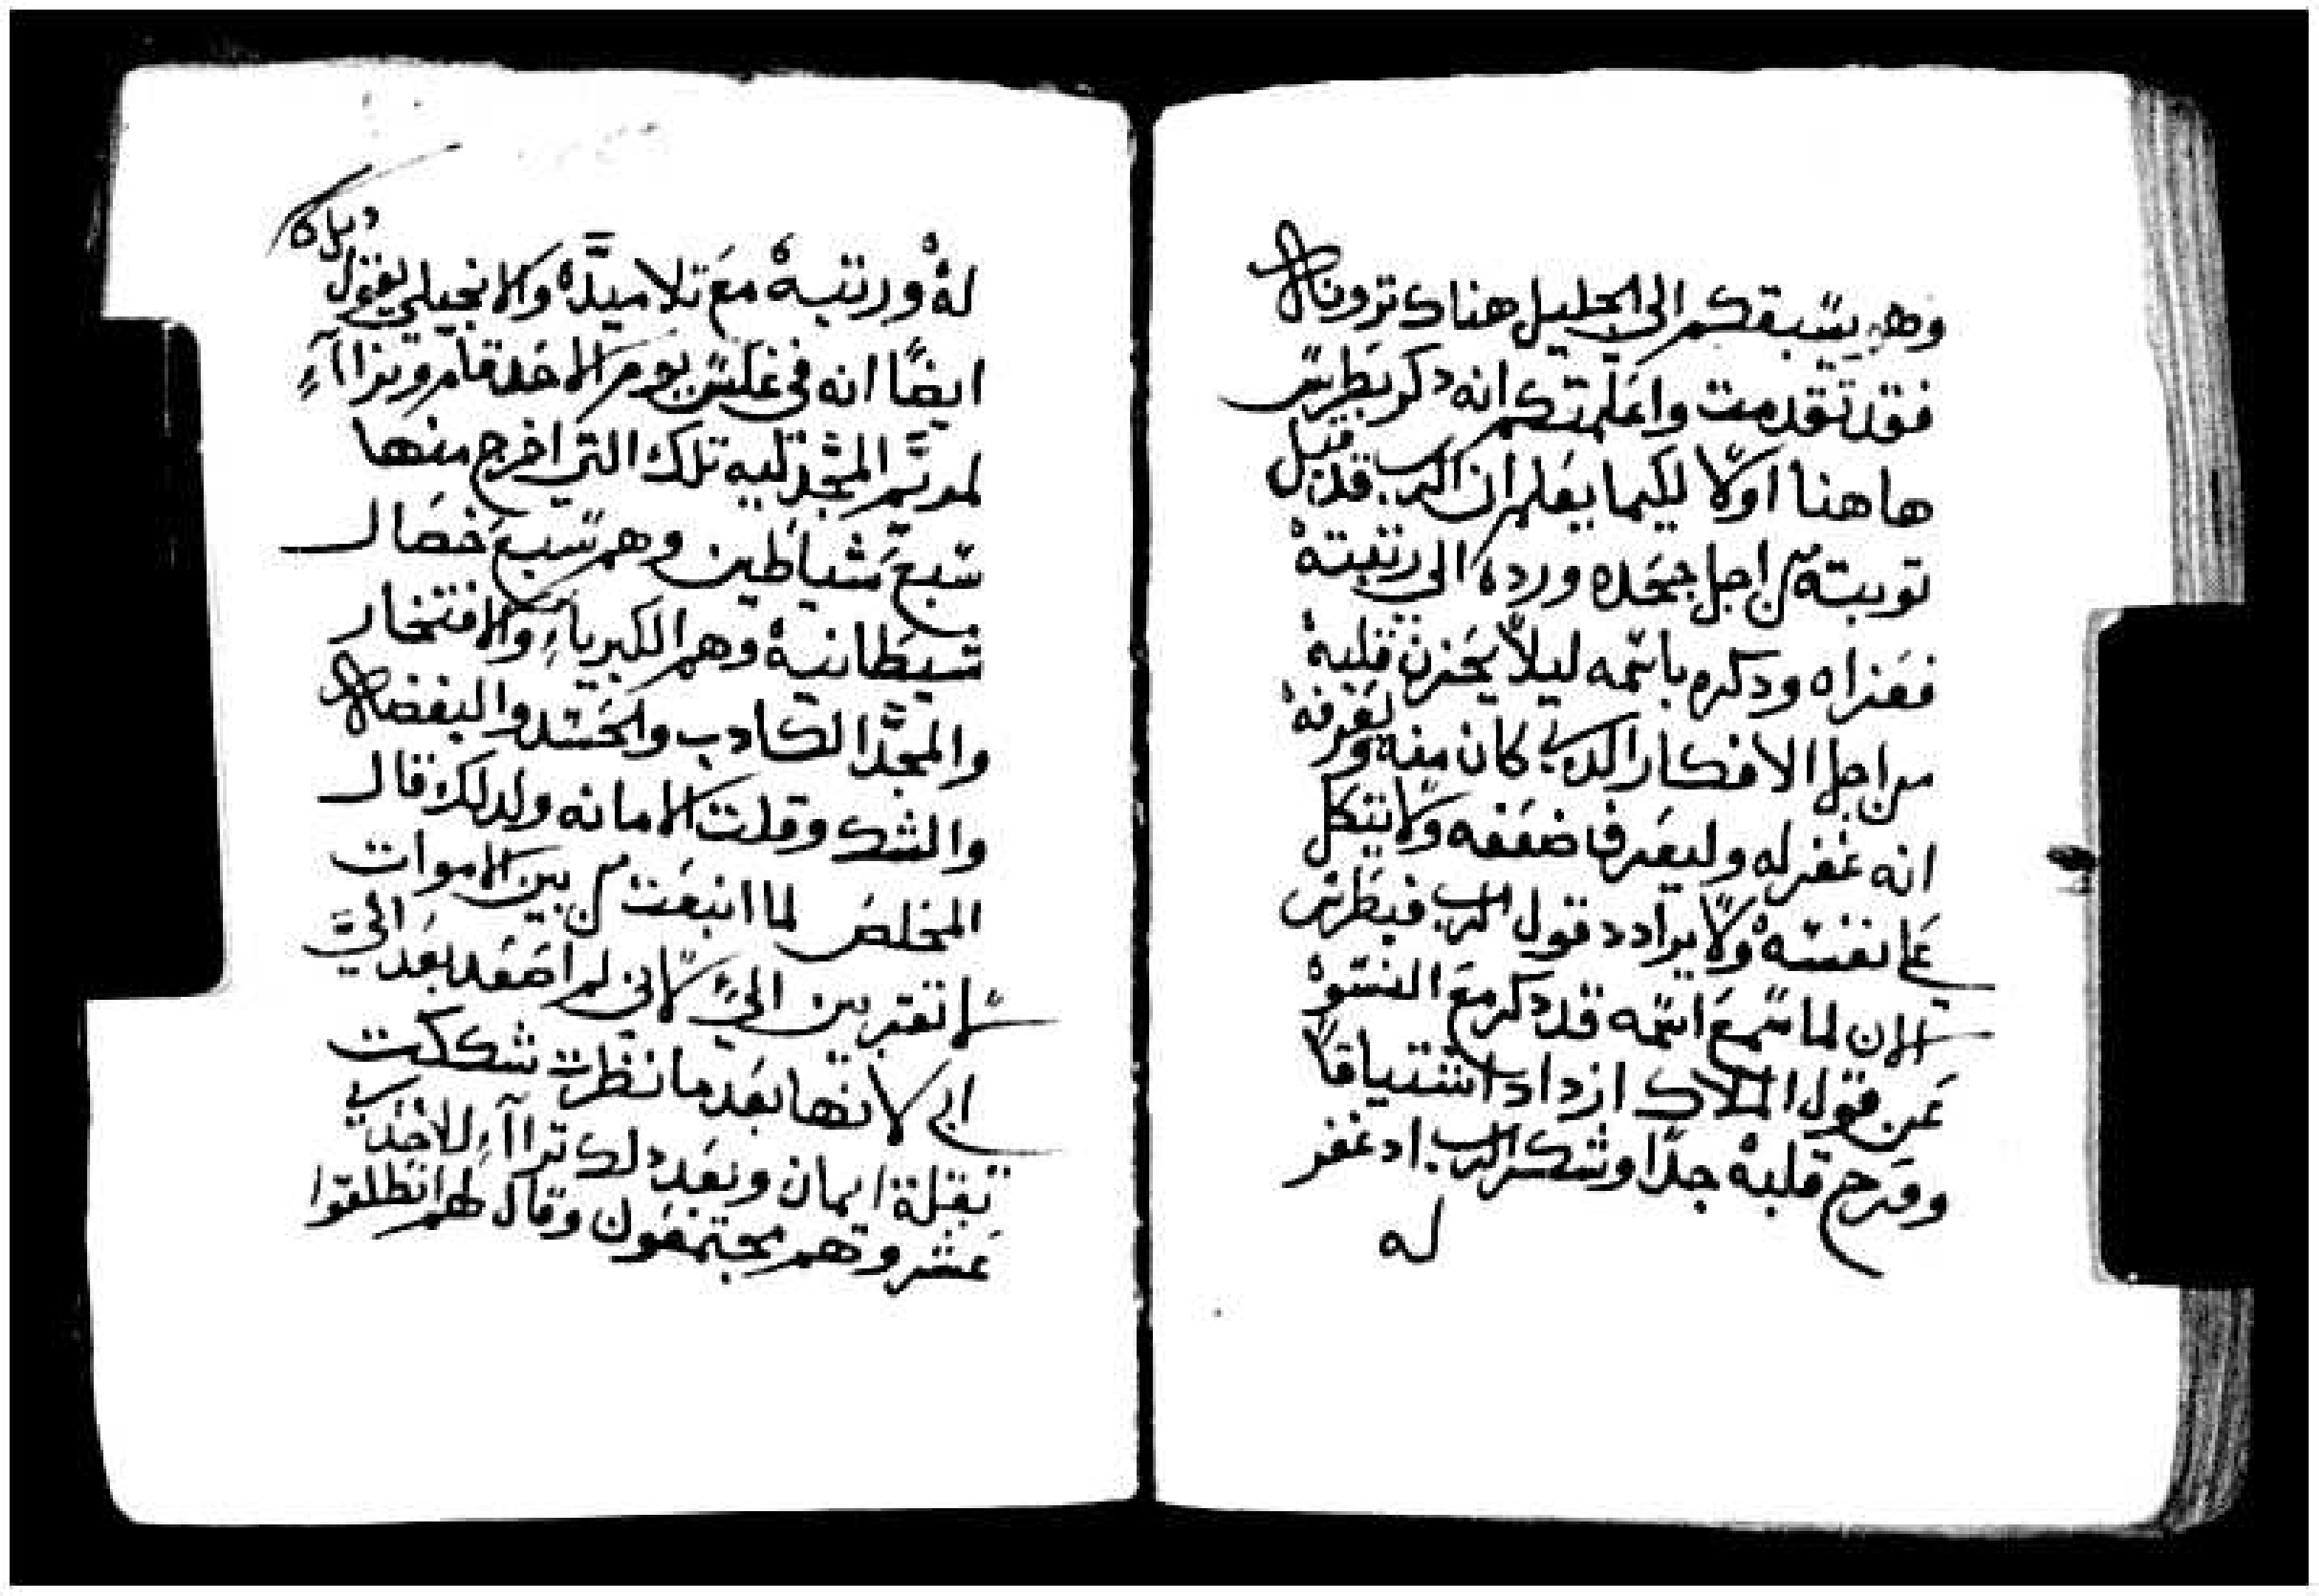 وهو يسبقكم الي الجليل هناك ترونه
فقد تقدمت واعلمتكم انه دكر بطرس
هاهنا اولا لكيما يعلم ان الرب قد قبل
توبته من اجل جحده ورده الي رتبته
فعزاه ودكره باسمه ليلا يحزن قلبه
من اجل الافكار الدي كان منه ويعرفه
انه غفر له وليعرف ضعفه ولا يتكل
علي نفسه ولا يرادد قول الرب فبطرس
الان لما سمع اسمه قد دكر مع النسوه
عن قول الملاك ازداد اشتياقا
وفرح قلبه جدا وشكر الرب اد غفر
له
له ورتبه مع تلاميده والانجيلي يقول
ايضا انه في غلس يوم الاحد قام وترااء
لمريم المجدليه تلك التي اخرج منها
سبع شياطين وهم سبع خصال
شيطانيه وهم الكبرياء والافتخار
والمجد الكادب والحسد والبغضه
والشك وقلت الامانه ولدلك قال
المخلص لما انبعت من بين الاموات
لا تقتربين الي لاني لم اصعد بعد الي
ابي لانها بعد ما نظرت شككت
بقلة ايمان وبعد دلك ترااء للاحدي
عشر وهم مجتمعون وقال لهم انطلقوا